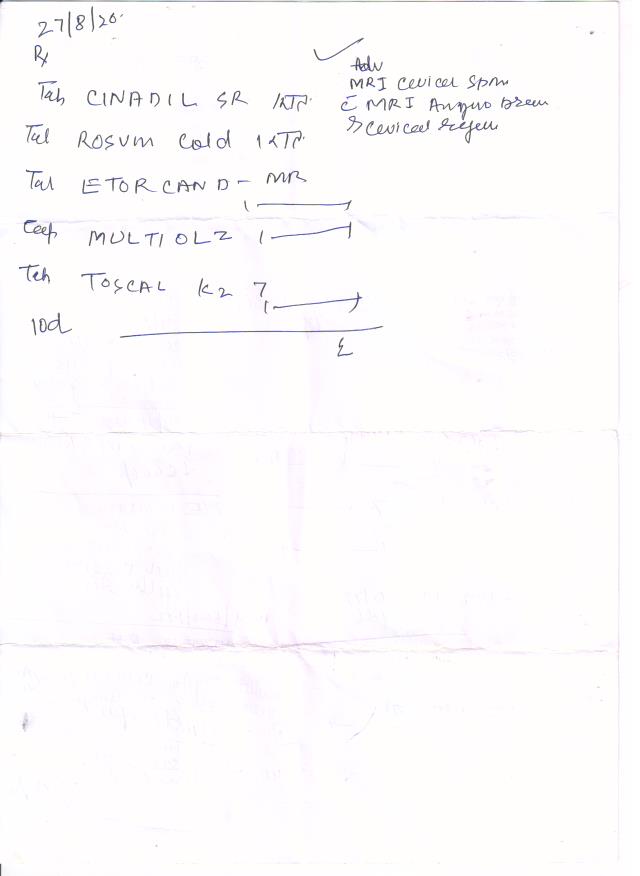 27/8/20
Rx
Adv
MRI Cevical Spin
c̄ MRI Angio Brain
& Cevical region
Tab CINADIL SR 1 रात
Tab ROSUM Cold 1 रात
Tab ETORCAND - MR
1 — 1
Cap MULTIOLZ 1 — 1
Tab TOSCAL K2 7
1 — 1
10d